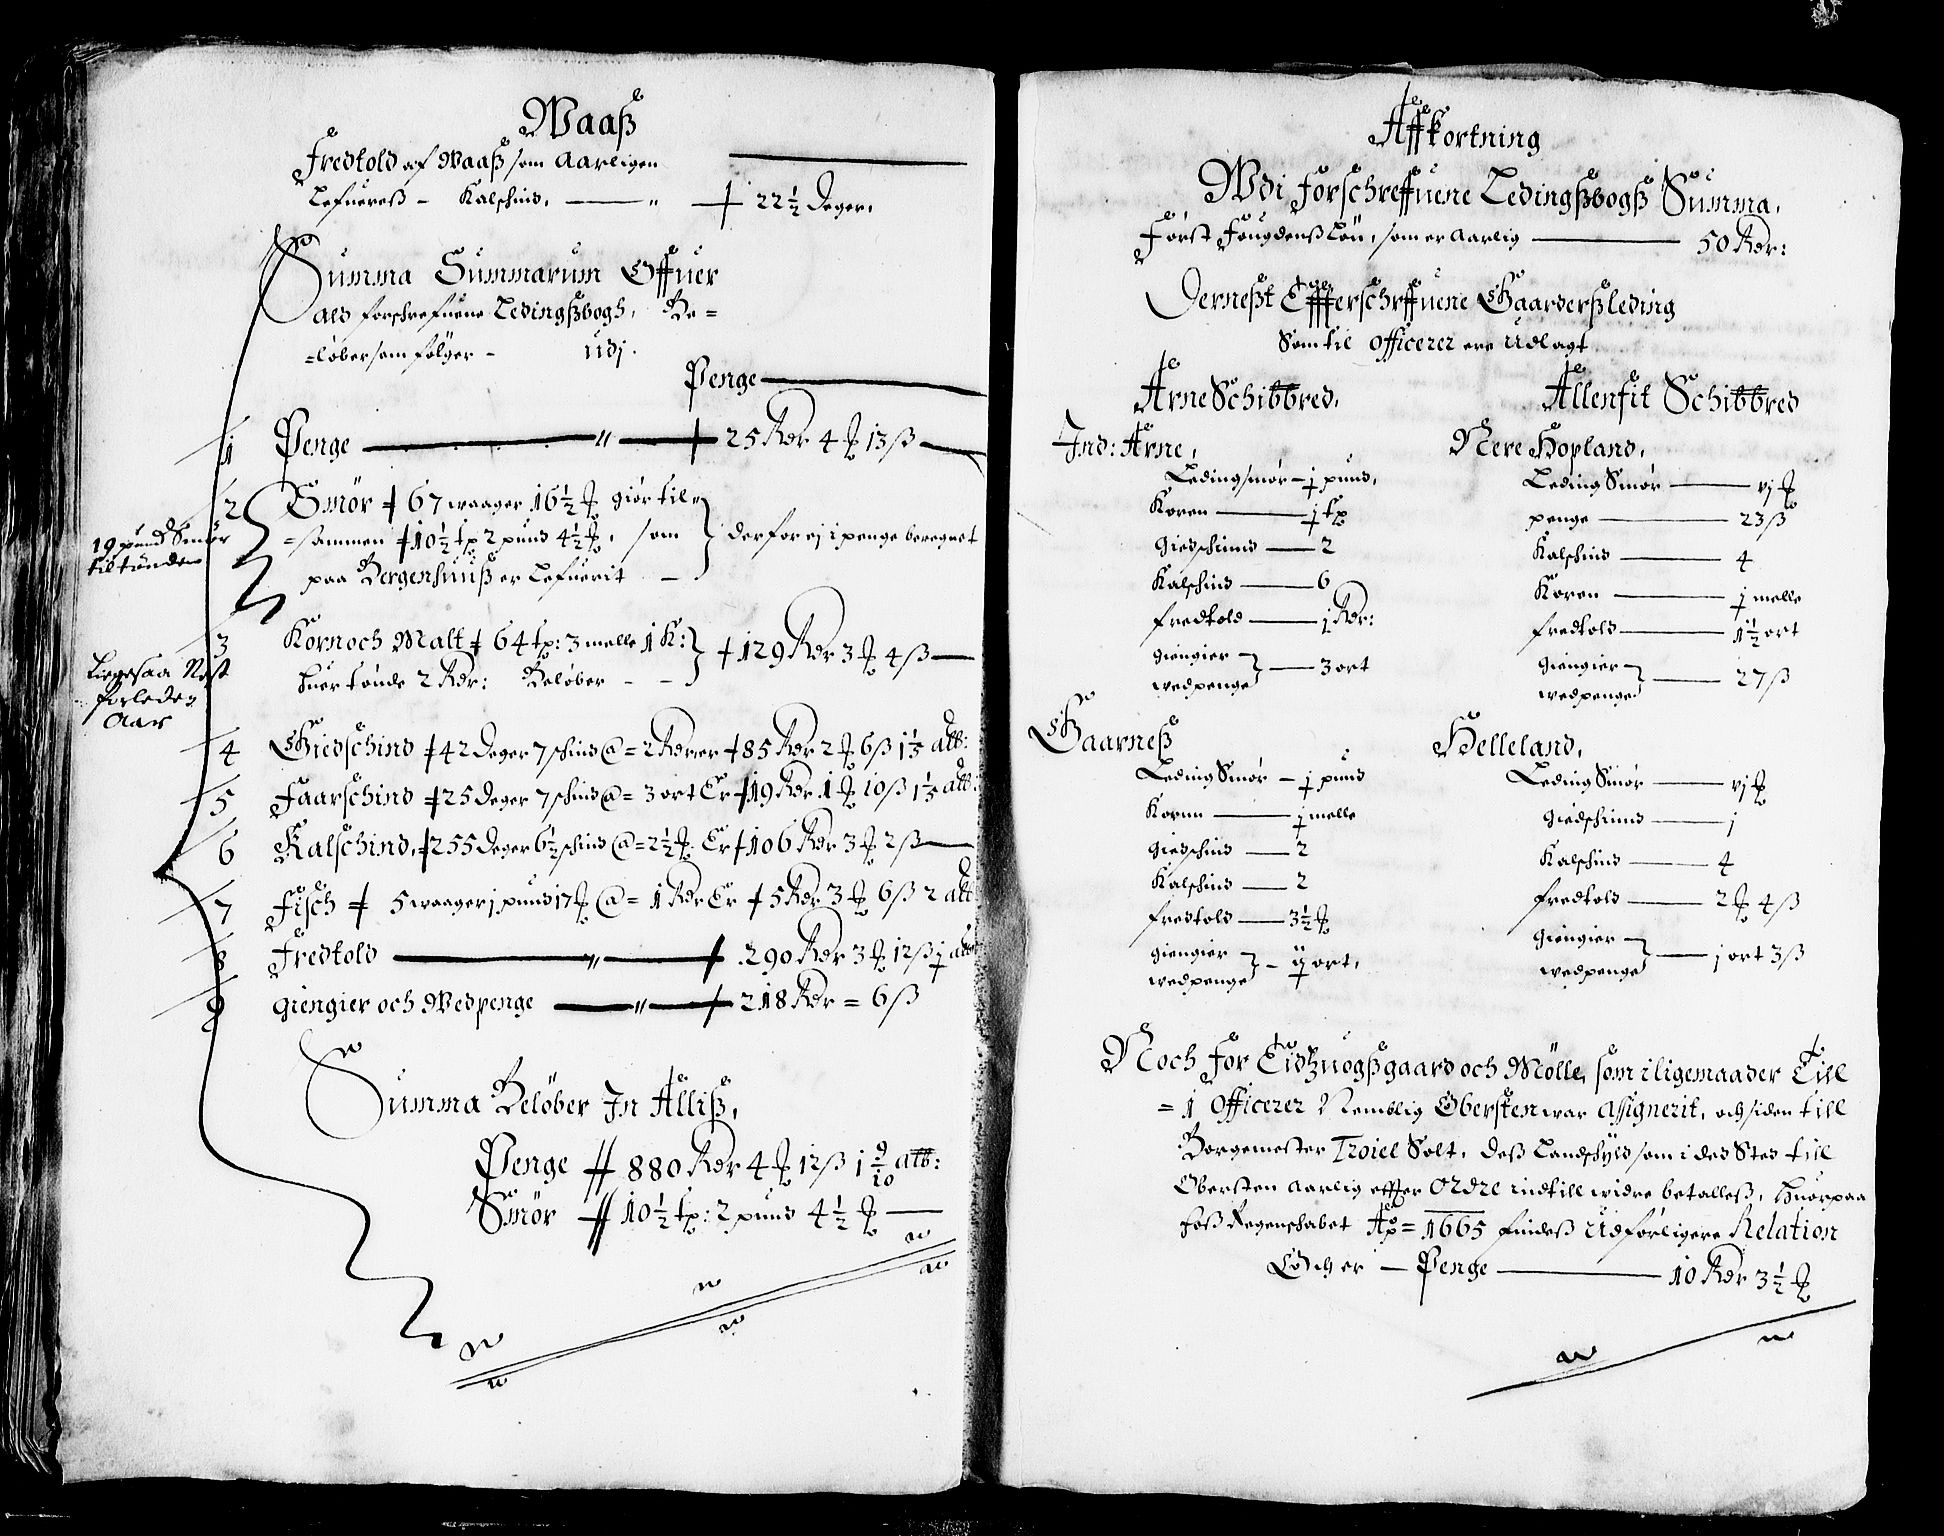 Waaß
Fredtold af Waaß som Aarligen
Lefuereß – Kalschind, — " — 22½ Deger,
Summa Summarum Offuer
ald forschrefuene Ledingßbogh, Be=
=løber som følger – udj.
Penge
1 Penge — " — 25 Rdr 4 ℔ 13 ß
2 Smör 67 waager 16½ ℔ giör til=
=sammen 10½ tp 2 pund 4½ ℔, som derfor ej i penge beregnet
paa Bergenhuuß er Lefuerit
19 pund Smör
til tønden
3 Korn och Malt 64 tp: 3 melle 1 K: 129 Rdr 3 ℔ 4 ß
huer tønde 2 Rdr: Beløber
Ligesaa Nest
forleden
Aar
4 Giedschind 42 Deger 7 schind @ = 2 Rdrer 85 Rdr 2 ℔ 6 ß 1⅕ alb:
5 Faarschind 25 Deger 7 schind @ = 3 ort Er 19 Rdr 1 ℔ 10 ß 1⅕ alb:
6 Kalschind, 255 Deger 6½ schind @ = 2½ ℔: Er 106 Rdr 3 ℔ 2 ß
7 Fisch 5 waager j pund 17 ℔ @ = 1 Rdr Er 5 Rdr 3 ℔ 6 ß 2 alb
8 Fredtold — " — 290 Rdr 3 ℔ 12 ß j alb
9 giengier och Wedpenge — " — 218 Rdr = 6 ß
Summa Beløber In Alliß,
Penge 880 Rdr 4 ℔ 12 ß 1 9/10 alb:
Smör 10½ tp: 2 pund 4½ ℔
Affkortning
Wdi forschreffuene Ledingßbogß Summa,
Først Fougdenß Lön, som er Aarlig — 50 Rdr:
Derneßt Effterschreffuene Gaarderß leding
Som til Officerer ere Udlagt
Arne Schibbred,
Ind: Arne,
Leding smör – j pund,
Koren — j tp
Giedschind — 2
Kalschind — 6
fredtold — j Rdr:
giengier
wedpenge — 3 ort
Gaarneß
Leding Smör – j pund
Koren — j melle
giedschind — 2
Kalschind — 2
fredtold — 3½ ℔
giengier
wedpenge – ij ort,
Allenfit Schibbred
Nere Hopland,
Leding Smör — vj ℔
penge — 23 ß
Kalschind — 4
Koren — j melle
fredtold — 1½ ort
giengier
wedpenge — 27 ß
Helleland,
Leding Smör — vj ℔
giedschind — j
Kalschind — 4
fredtold — 2 ℔ 4 ß
giengier
wedpenge — j ort 3 ß
Noch for gaard och Mölle, som i ligemaader Till
= 1 Officerer Nemblig Obersten war Assignerit, och siden till
Borgemester Solt, deß Landschyld som i des Sted till
Obersten Aarlig effter Ordre indtill widre betalleß, huorpaa
hoß Regenschabet Ao = 1665 findeß Udførligere Relation
Och er — Penge — 10 Rdr 3½ ℔